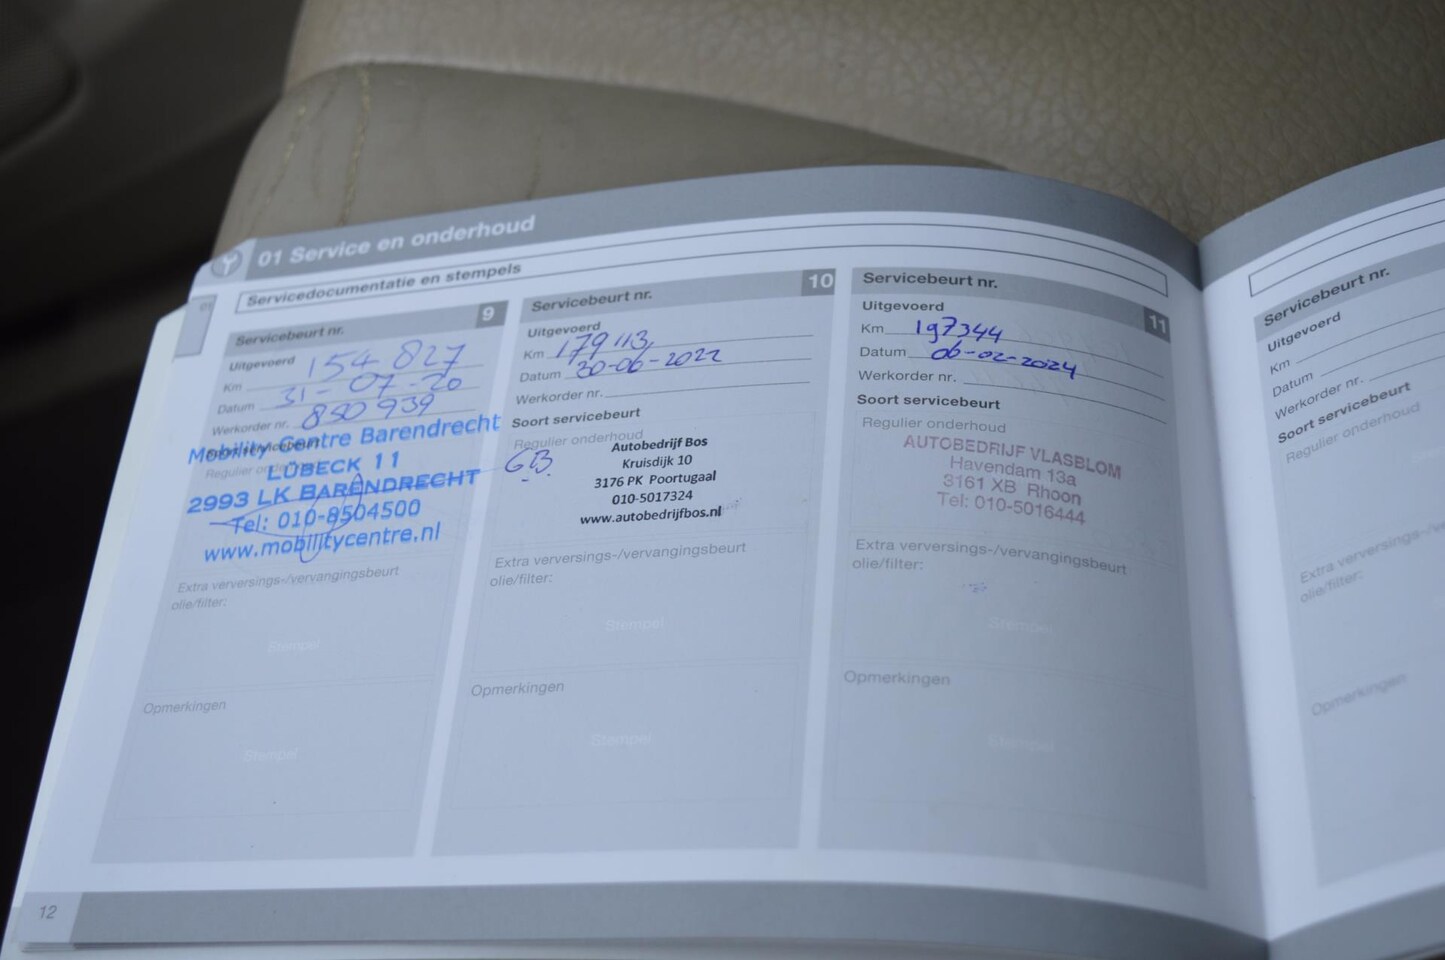 01 Service en onderhoud
Servicedocumentatie en stempels
Servicebeurt nr. 9
Uitgevoerd
Km 154 827
Datum 31-07-20
Werkorder nr. 850 939
Soort servicebeurt
Regulier onderhoud
Mobility Centre Barendrecht
LÜBECK 11
2993 LK BARENDRECHT
Tel: 010-8504500
www.mobilitycentre.nl
Extra verversings-/vervangingsbeurt
olie/filter:
Stempel
Opmerkingen
Stempel
Servicebeurt nr. 10
Uitgevoerd
Km 179 113
Datum 30-06-2022
Werkorder nr.
Soort servicebeurt
Regulier onderhoud
GB
Autobedrijf Bos
Kruisdijk 10
3176 PK Poortugaal
010-5017324
www.autobedrijfbos.nl
Extra verversings-/vervangingsbeurt
olie/filter:
Stempel
Opmerkingen
Stempel
Servicebeurt nr. 11
Uitgevoerd
Km 197344
Datum 06-02-2024
Werkorder nr.
Soort servicebeurt
Regulier onderhoud
AUTOBEDRIJF VLASBLOM
Havendam 13a
3161 XB Rhoon
Tel: 010-5016444
Extra verversings-/vervangingsbeurt
olie/filter:
Stempel
Opmerkingen
Stempel
12
Servicebeurt nr.
Uitgevoerd
Km
Datum
Werkorder nr.
Soort servicebeurt
Regulier onderhoud
Extra verversings-/
olie/filter:
Opmerkingen